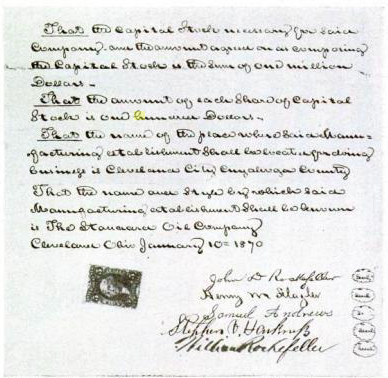 That the Capital Stock necessary for said
Company and the amount agreed on as composing
the Capital Stock is the sum of one million
Dollars.
That the amount of each Share of Capital
Stock is one hundred Dollars.
That the name of the place where said Manu-
facturing establishment shall be located for doing
business is Cleveland City Cuyahoga County
That the name and style by which said
Manufacturing establishment shall be known
is The Standard Oil Company
Cleveland Ohio January 10th 1870
John D Rockefeller
Henry M Flagler
Samuel Andrews
Stephen V. Harkness
William Rockefeller